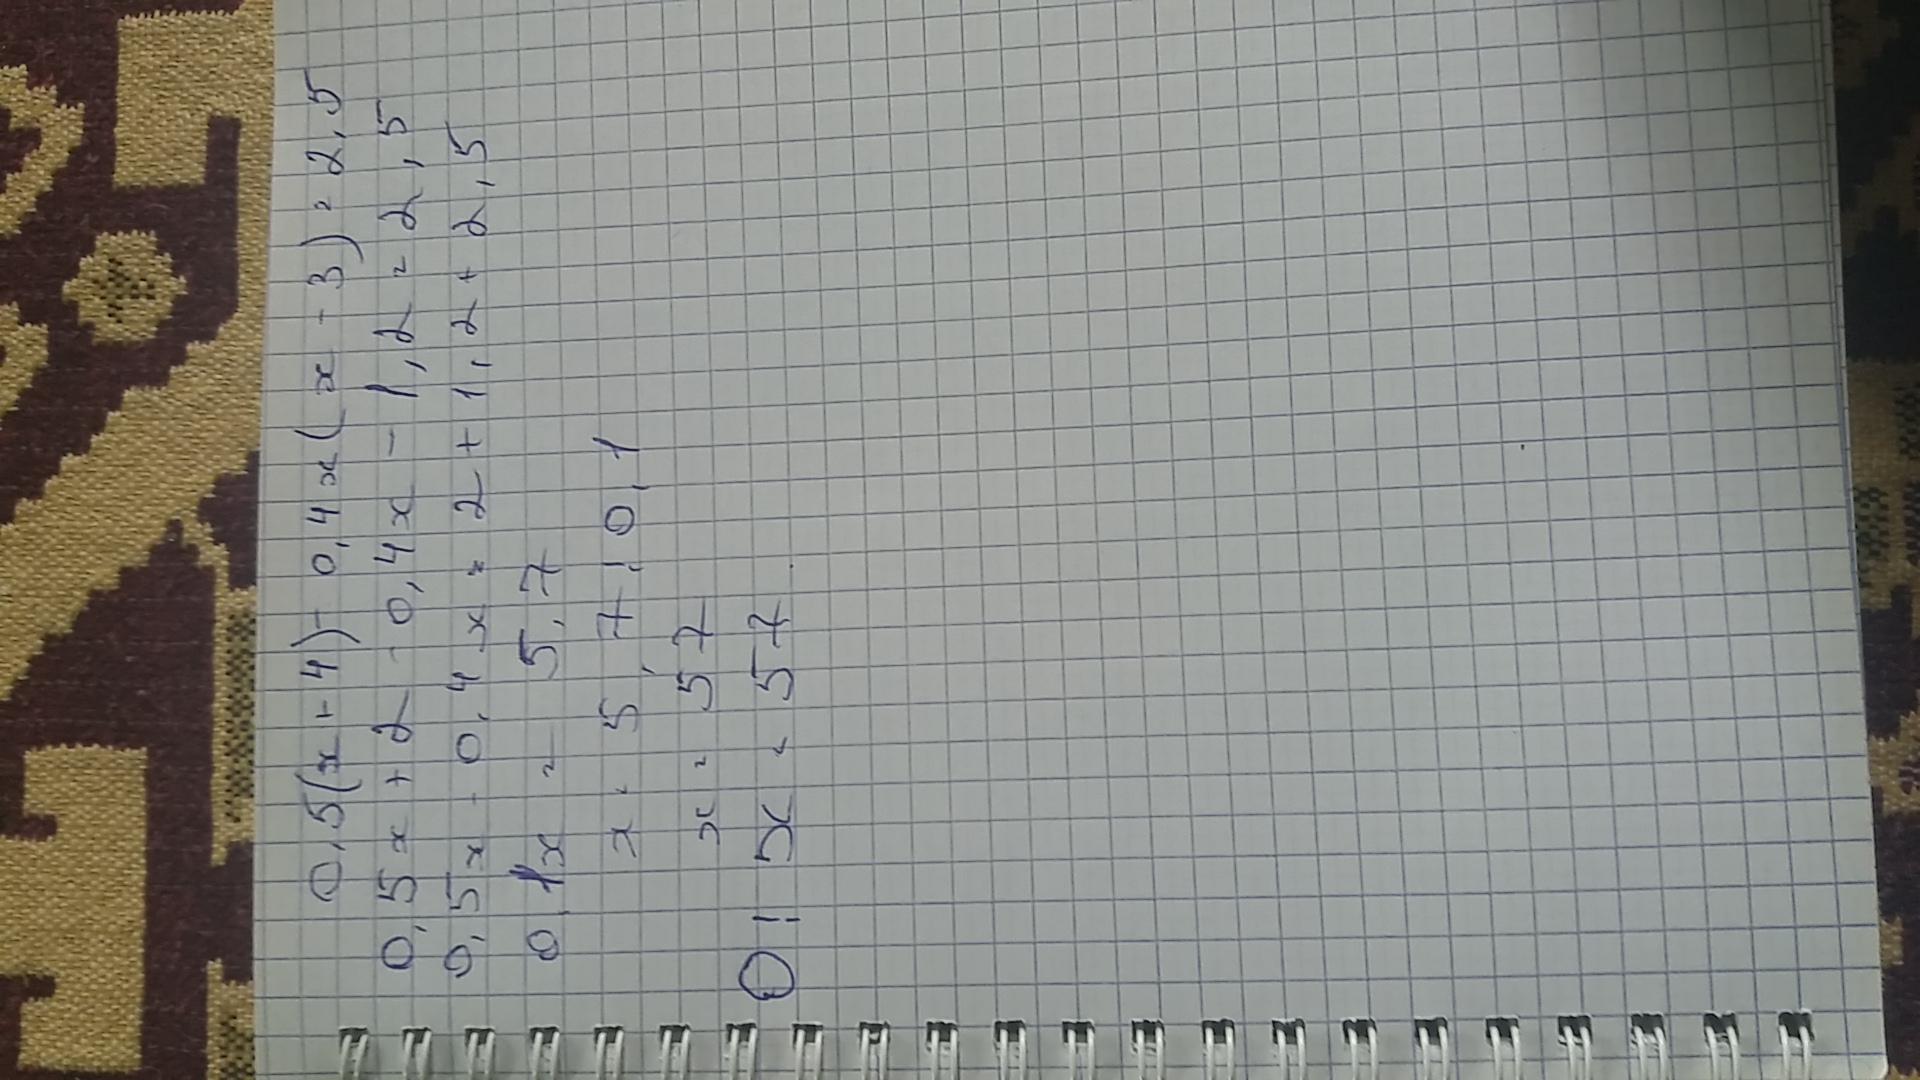 0,5(x+4)-0,4x(x-3)=2,5
0,5x+2-0,4x-1,2=2,5
0,5x-0,4x=2+1,2+2,5
0,1x=5,7
x=5,7:0,1
x=57
О: x=57